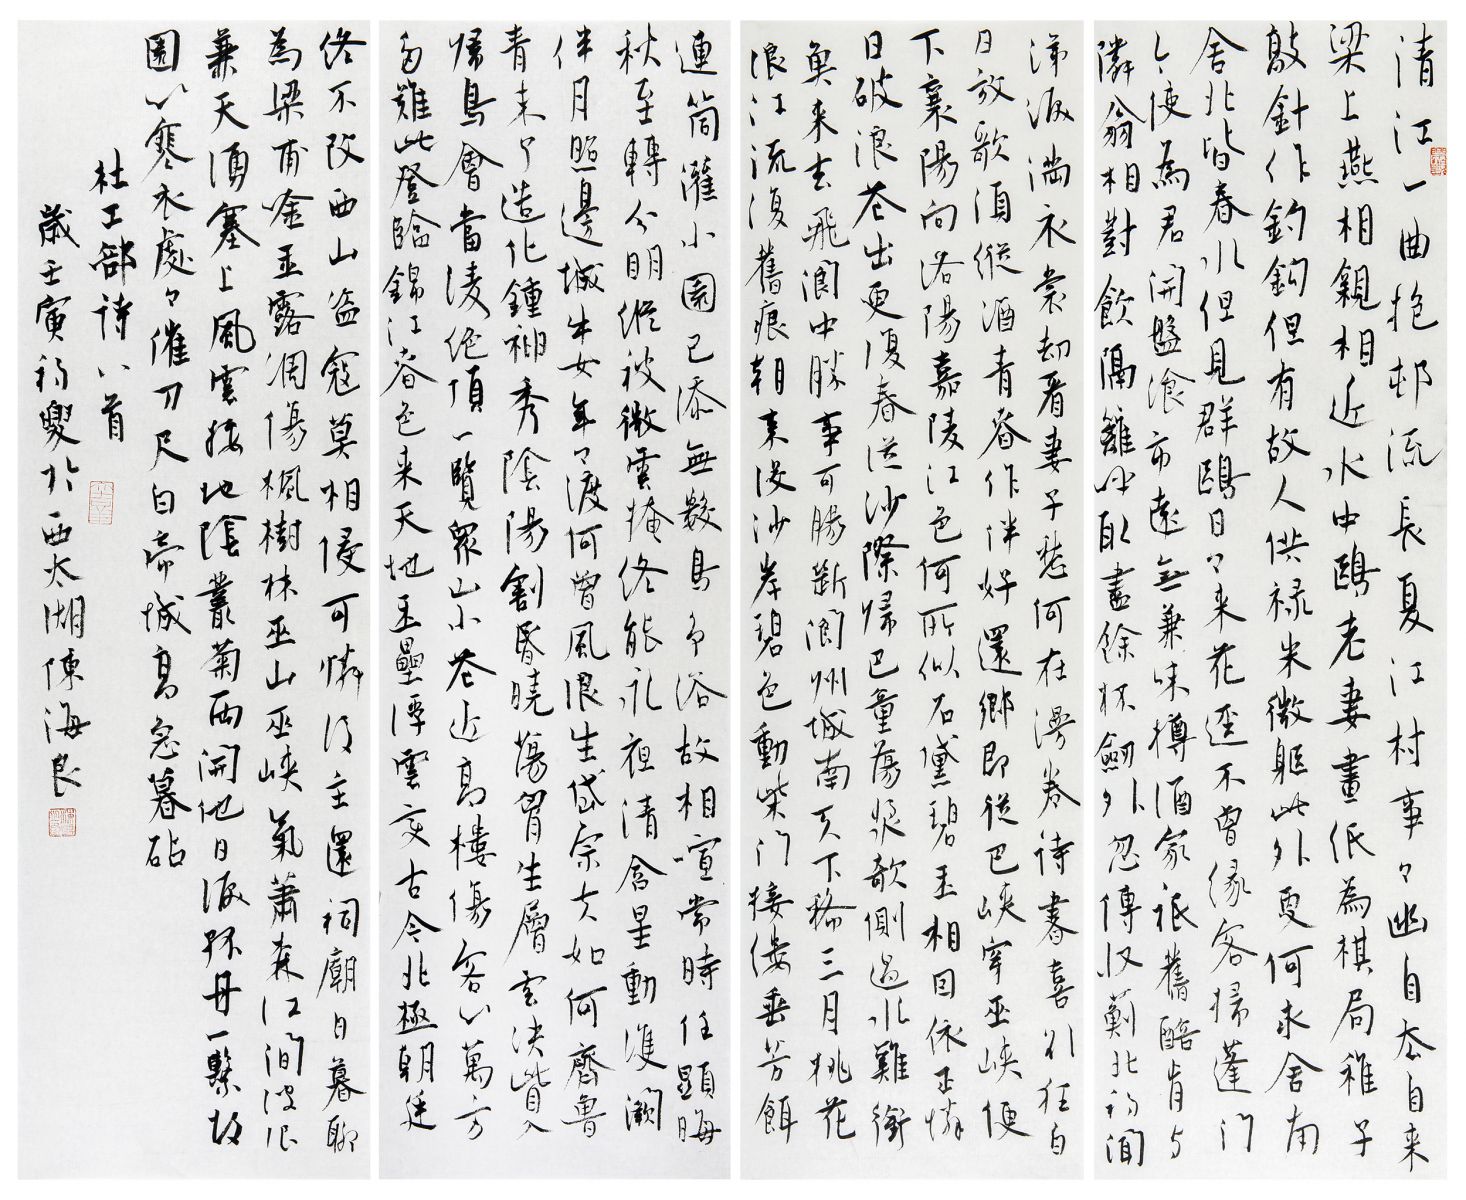 清江一曲抱邨流長夏江村事々幽自去自来
梁上燕相親相近水中鷗老妻畫紙為棋局稚子
敲針作釣鉤但有故人供禄米微軀此外更何求舍南
舍北皆春水但見群鷗日々来花逕不曾缘客掃蓬門
今使為君開盤飧市遠無兼味樽酒家祗舊醅肯与
隣翁相對飲隔籬呼取盡餘杯劍外忽傳收薊北初聞
涕淚满衣裳却看妻子愁何在漫卷诗書喜欲狂白
日放歌須縱酒青春作伴好還鄉即從巴峽穿巫峽便
下襄陽向洛陽嘉陵江色何所似石黛碧玉相因依正憐
日破浪花出更復春從沙際歸巴童蕩槳欹側過水雞銜
魚来去飛閬中勝事可腸斷閬州城南天下稀三月桃花
浪江流復舊痕朝来没沙岸碧色動柴門接縷垂芳餌
連筒灌小園已添無數鳥争浴故相喧常時任顯晦
秋至轉分明縱被微雲掩终能永夜清含星動雙闕
伴月照邊城牛女年々渡何曾風浪生岱宗夫如何齊魯
青未了造化鍾神秀陰陽割昏曉蕩胸生層雲决眥入
歸鳥會當凌绝頂一覽衆山小花近高樓傷客心萬方
多難此登臨錦江春色来天地玉壘浮雲變古今北極朝廷
终不改西山盗寇莫相侵可憐後主還祠廟日暮聊
為梁甫吟玉露凋傷楓樹林巫山巫峽氣蕭森江間波浪
兼天湧塞上風雲接地陰叢菊兩開他日淚孤舟一繫故
園心寒衣處々催刀尺白帝城高急暮砧
杜工部詩八首
歲壬寅初夏於西太湖陳海良